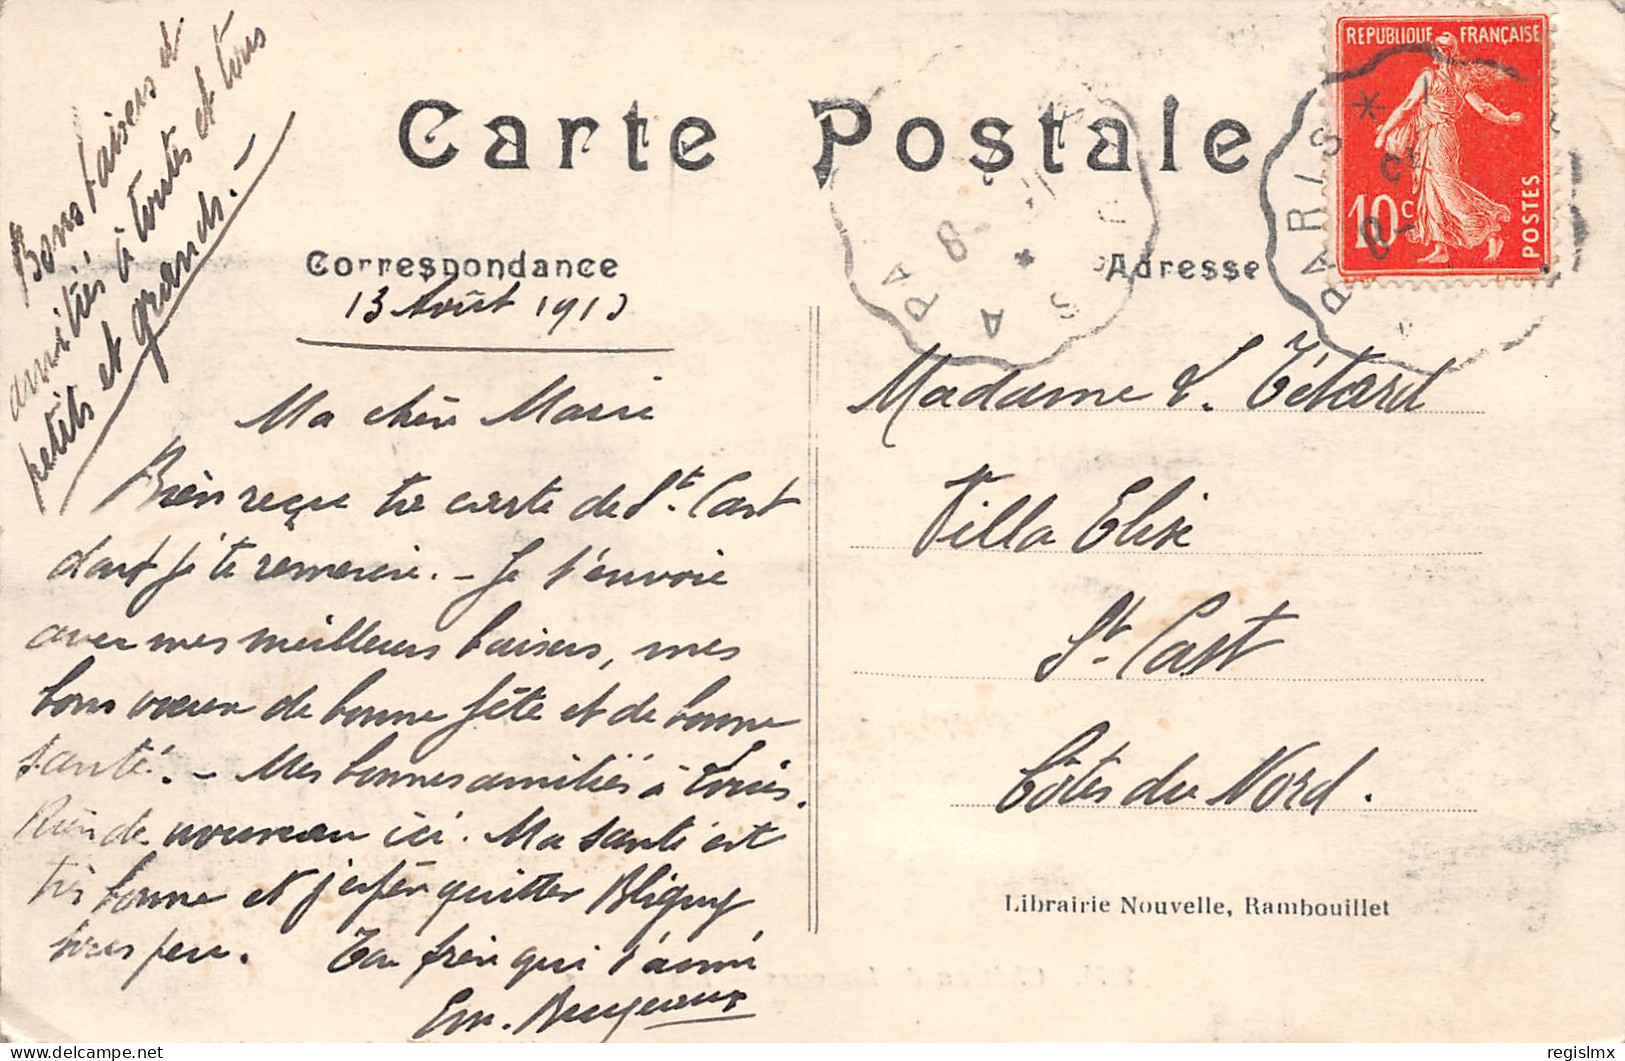 Bons baisers et
amitiés à toutes et tous
petits et grands. -
Carte Postale
REPUBLIQUE FRANÇAISE
10c
POSTES
PARIS *
Correspondance
Adresse
13 Août 1913
Ma chère Marie
Bien reçue ta carte de St. Cast
dont je te remercie. - Je t'envoie
avec mes meilleurs baisers, mes
bons voeux de bonne fête et de bonne
santé. - Mes bonnes amitiés à Louis.
Rien de nouveau ici. Ma santé est
très bonne et j'espère quitter Bligny
sous peu. Ton frère qui t'aime
Em.
Madame L. Tétard
Villa Elise
St. Cast
Côtes du Nord.
Librairie Nouvelle, Rambouillet
regislmx
delcampe.net